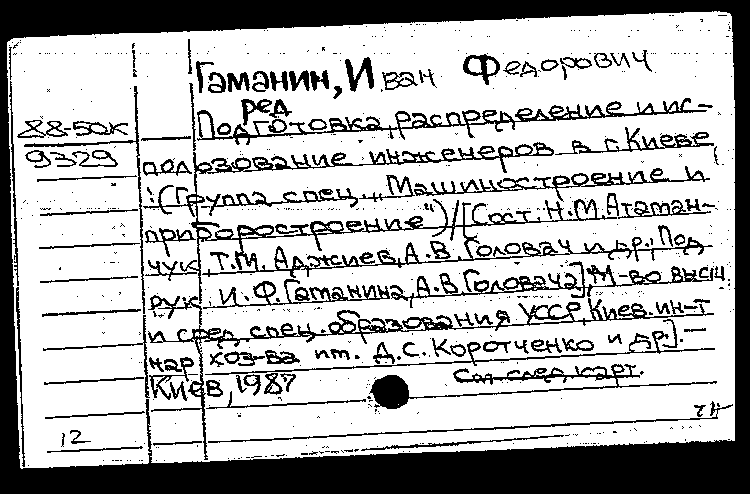 Гаманин, Иван Федорович
ред
88-50к
Подготовка, распределение и ис-
9329
пользование инженеров в г. Киеве
: (Группа спец. „Машиностроение и
приборостроение") / [Сост. Н.М. Атаман-
чук, Т.М. Аджиев, А.В. Головач и др.; Под
рук. И.Ф. Гаманина, А.В. Головача]; М-во высш.
и сред. спец. образования УССР, Киев. ин-т
нар хоз-ва им. Д.С. Коротченко и др.]. –
Киев, 1987
См. след. карт.
12